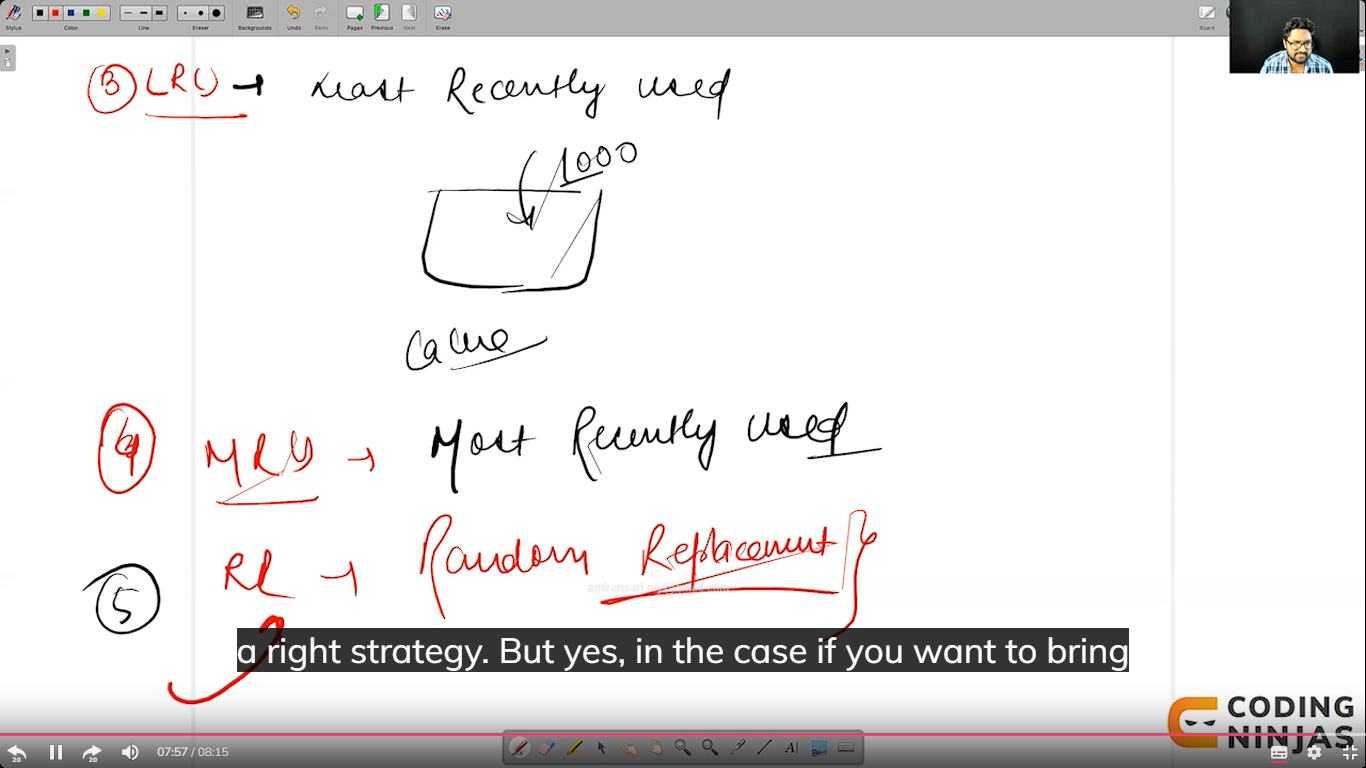 Stylus
Color
Line
Eraser
Backgrounds
Undo
Redo
Pages
Previous
Next
Erase
Board
③ LRU → Least Recently Used
1000
Cache
④ MRU → Most Recently Used
⑤ RR → Random Replacement
a right strategy. But yes, in the case if you want to bring
CODING
NINJAS
20
20
07:57 / 08:15